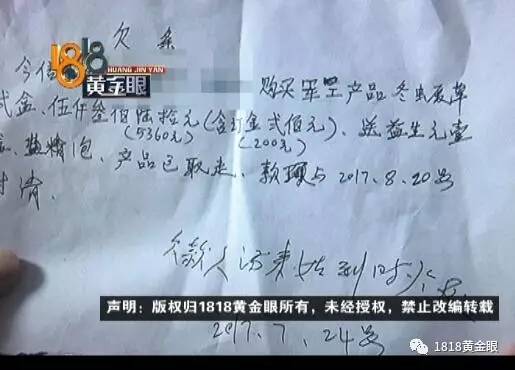 欠条
1818
黄金眼
HUANG JIN YAN
今
购买 产品冬虫夏草
贰盒、伍仟叁佰陆拾元(含订金贰佰元)、送益生元壹
(5360元) (200元)
产品已取走、款项与2017、8、20号
付清、
欠款人
声明：版权归1818黄金眼所有，未经授权，禁止改编转载
2017、7、24号
1818黄金眼